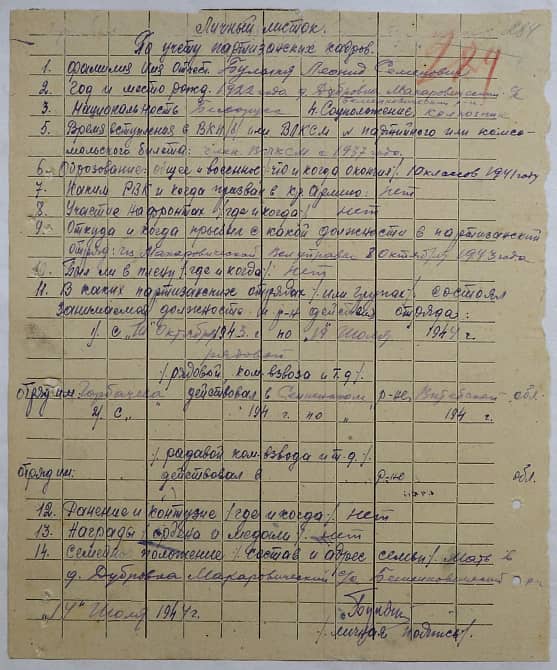 Личный листок.
По учету партизанских кадров.
284
1. Фамилия Имя Отчест. Леонид Семенович
2. Год и место рожд. 1922 года д. Дубровка Макаровичский
3. Национальность Белорус 4. Соцположение колхозник
5. Время вступления в ВКП/б/ или ВЛКСМ и партийного или комсо-
мольского билета: член ВЛКСМ с 1937 года.
6. Образование: общее и военное/что и когда окончил/. 10 классов 1941 году
7. Каким РВК и когда призван в Кр Армию: нет
8. Участие на фронтах /где и когда/ нет
9. Откуда и когда прибыл с какой должности в партизанский
отряд: из Макаровичской 8 Октября 1943 года
10. Был ли в плену /где и когда/: нет
11. В каких партизанских отрядах /или групах/ состоял
Занимаемая должность и р-н действия отряда:
1/. с Октября 1943 г. по Июля 1944 г.
рядовой
/рядовой ком. взвоза и т.д/.
отряд им. действовал в Сенненском р-не, Витебской обл.
2/. с " 194 г. по " 194 г.
/рядавой ком. взвода и т.д/.
отряд им: действовал в р-не обл.
12. Ранение и контузие /где и когда/ нет
13. Награды /ордена и медали/. нет
14. Семейное положение /. Состав и адрес семьи/. Мать в
д. Дубровка Макаровический с/с Бешенковичский р-н
"14" Июля 1944 г.
/личная подпись/.